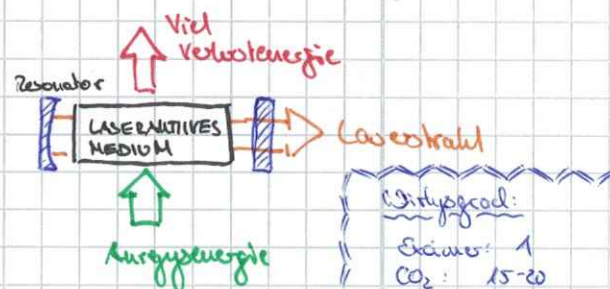 Viel
Verlustenergie
Resonator
LASERAKTIVES
MEDIUM
Laserstrahl
Anregungsenergie
Wirkungsgrad:
Excimer: 1
CO₂: 15-20